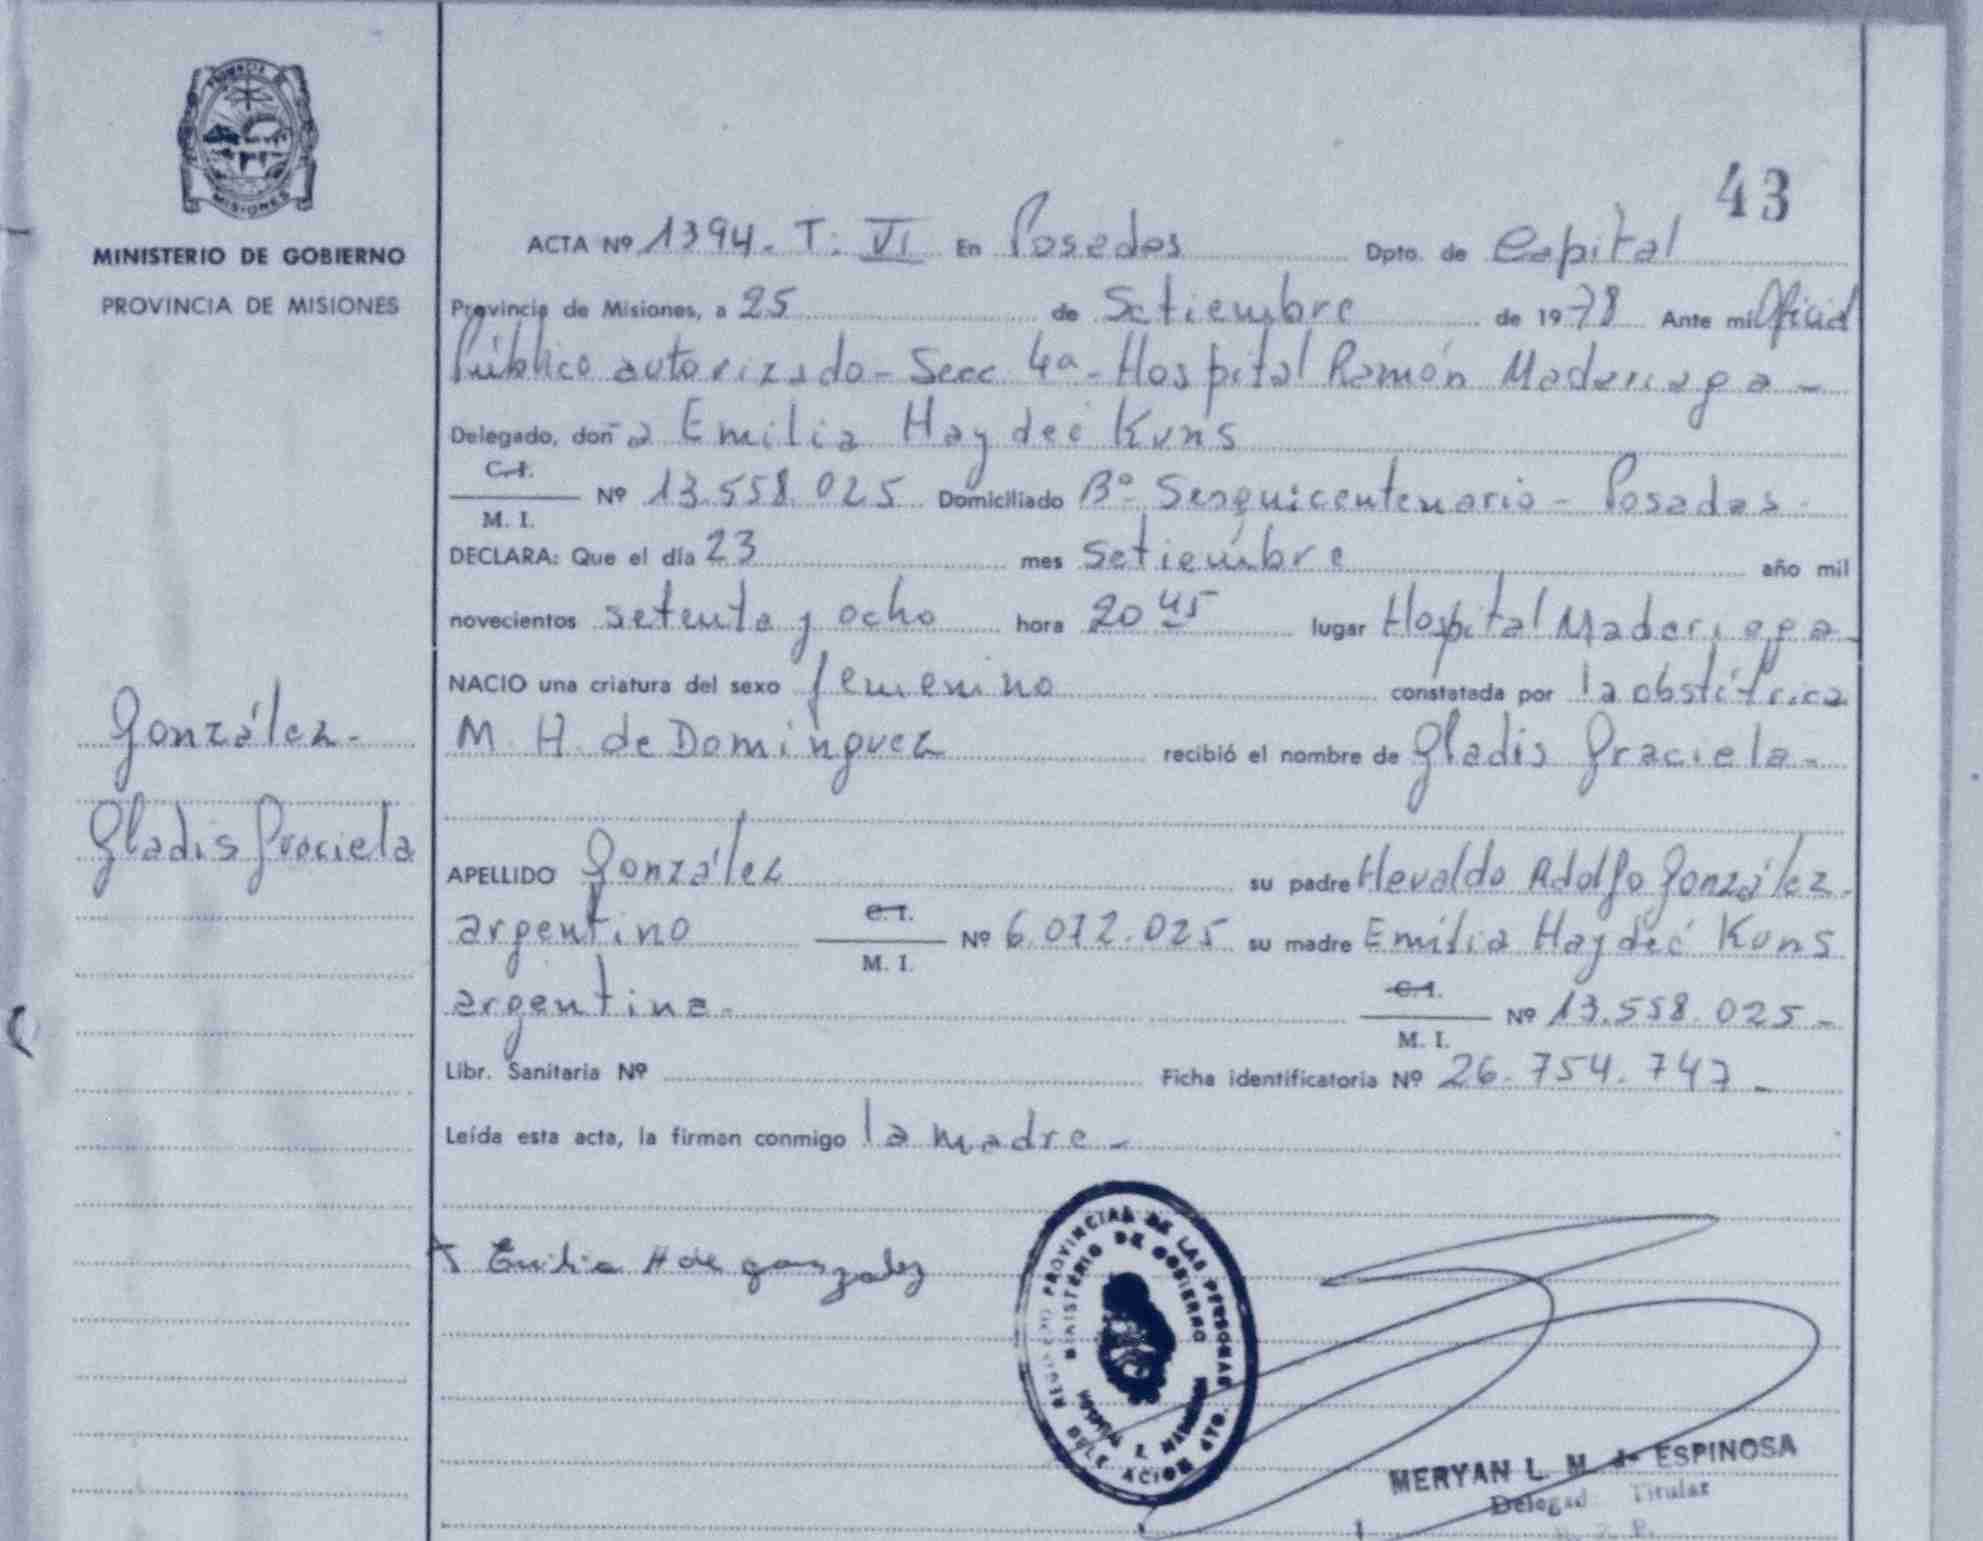 PROVINCIA DE
MISIONES
MINISTERIO DE GOBIERNO
PROVINCIA DE MISIONES
González-
Gladis Graciela
43
ACTA Nº 1394. T: VI En Posadas Dpto. de Capital
Provincia de Misiones, a 25 de Setiembre de 1978 Ante mi Oficial
Público autorizado - Secc 4a - Hospital Ramón Madariaga -
Delegado, don a Emilia Haydeé Kuns
C.I.
M. I. Nº 13.558.025 Domiciliado Bº Sesquicentenario - Posadas -
DECLARA: Que el día 23 mes Setiembre año mil
novecientos setenta y ocho hora 20 45 lugar Hospital Madariaga -
NACIO una criatura del sexo femenino constatada por la obstétrica
M. H. de Dominguez recibió el nombre de Gladis Graciela -
APELLIDO González su padre Hevaldo Adolfo González -
argentino C.I. M. I. Nº 6.072.025 su madre Emilia Haydeé Kuns
argentina - C.I. M. I. Nº 13.558.025 -
Libr. Sanitaria Nº Ficha identificatoria Nº 26.754.747 -
Leída esta acta, la firman conmigo la madre -
Emilia H de gonzalez
PROVINCIAL DE LAS PERSONAS
MINISTERIO DE GOBIERNO
DELEGACION
MERYAN L. M. de ESPINOSA
Delegad Titular